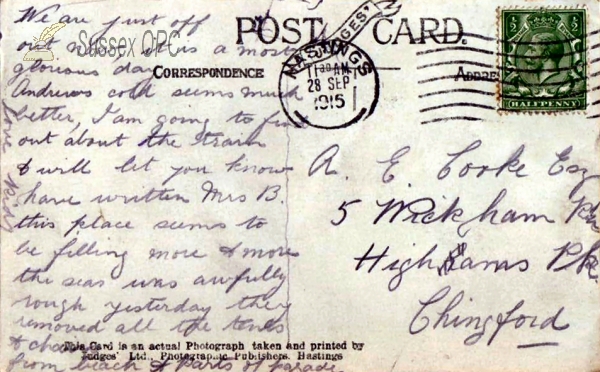 POST CARD.
CORRESPONDENCE
JUDGES'
HASTINGS
11 30 AM
28 SEP
1915
HALFPENNY
Sussex OPC
We are just off
out now it is a most
glorious day
Andrews cold seems much
better, I am going to find
out about the train
& will let you know
have written Mrs B.
this place seems to
be filling more & more
the seas was awfully
rough yesterday they
removed all the tents
& chairs
from beach & parts of parade
love
A. E. Cooke Esq
5 Wickham Rd
Highams Pk
Chingford
This Card is an actual Photograph taken and printed by
Judges' Ltd., Photographic Publishers, Hastings